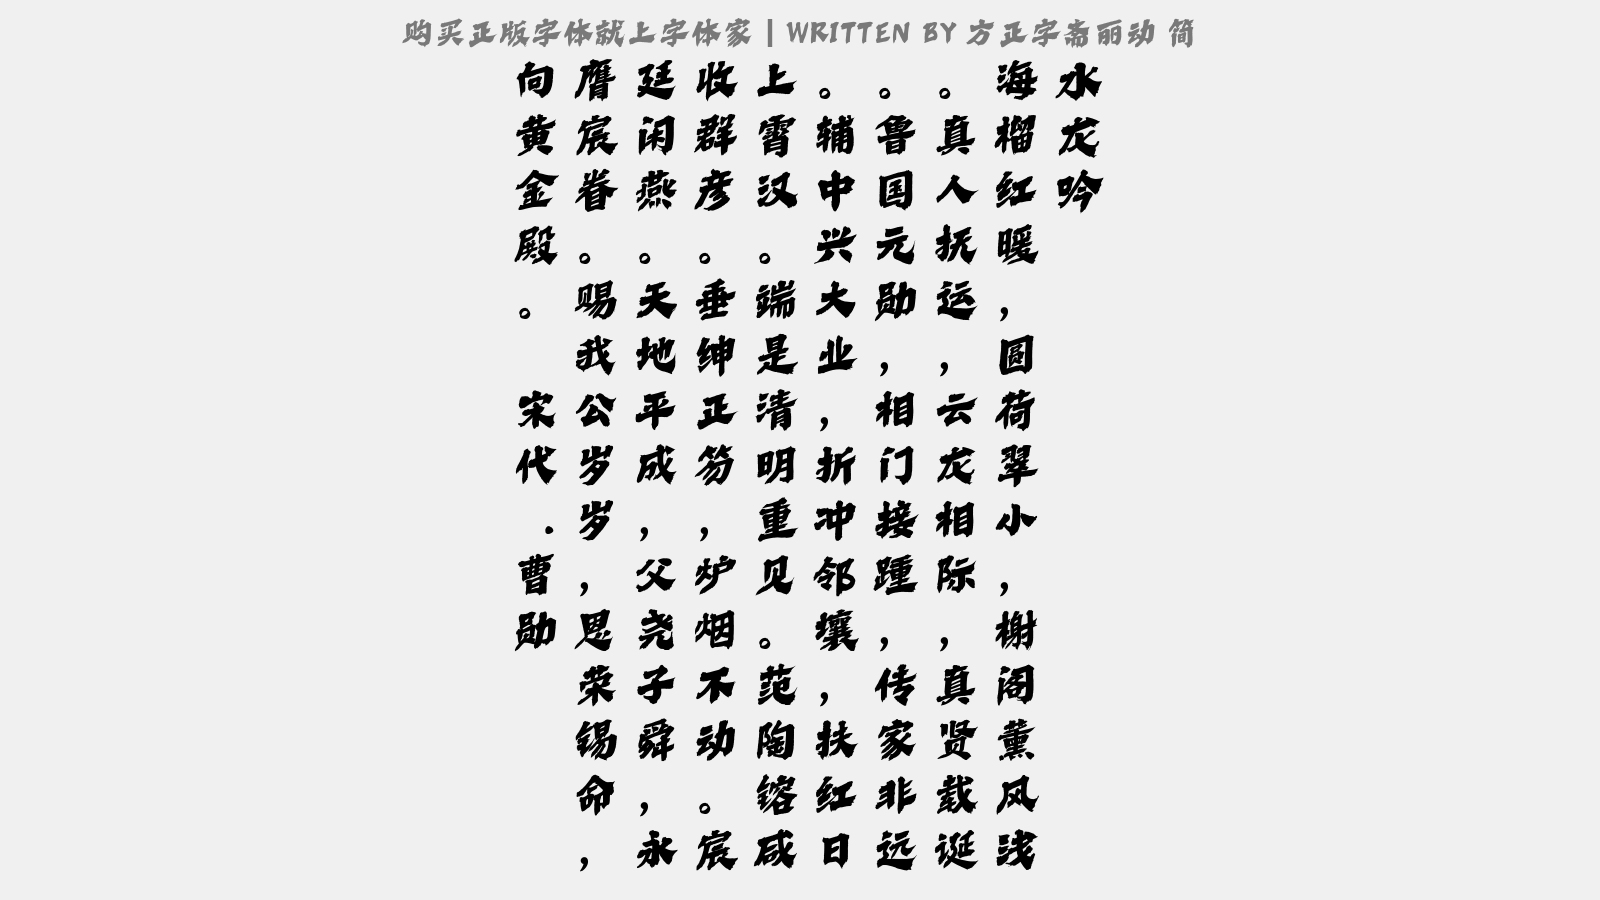 购买正版字体就上字体家 | WRITTEN BY 方正字斋丽动 简
水龙吟
海榴红暖，圆荷翠小，榭阁薰风浅
。真人抚运，云龙相际，真贤载诞
。鲁国元勋，相门接踵，传家非远
。辅中兴大业，折冲邻壤，扶红日
上霄汉。端是清明重见。范陶镕咸
收群彦。垂绅正笏，炉烟不动。宸
廷闲燕。天地平成，父尧子舜，永
膺宸眷。赐我公岁岁，思荣锡命，
向黄金殿。 宋代.曹勋